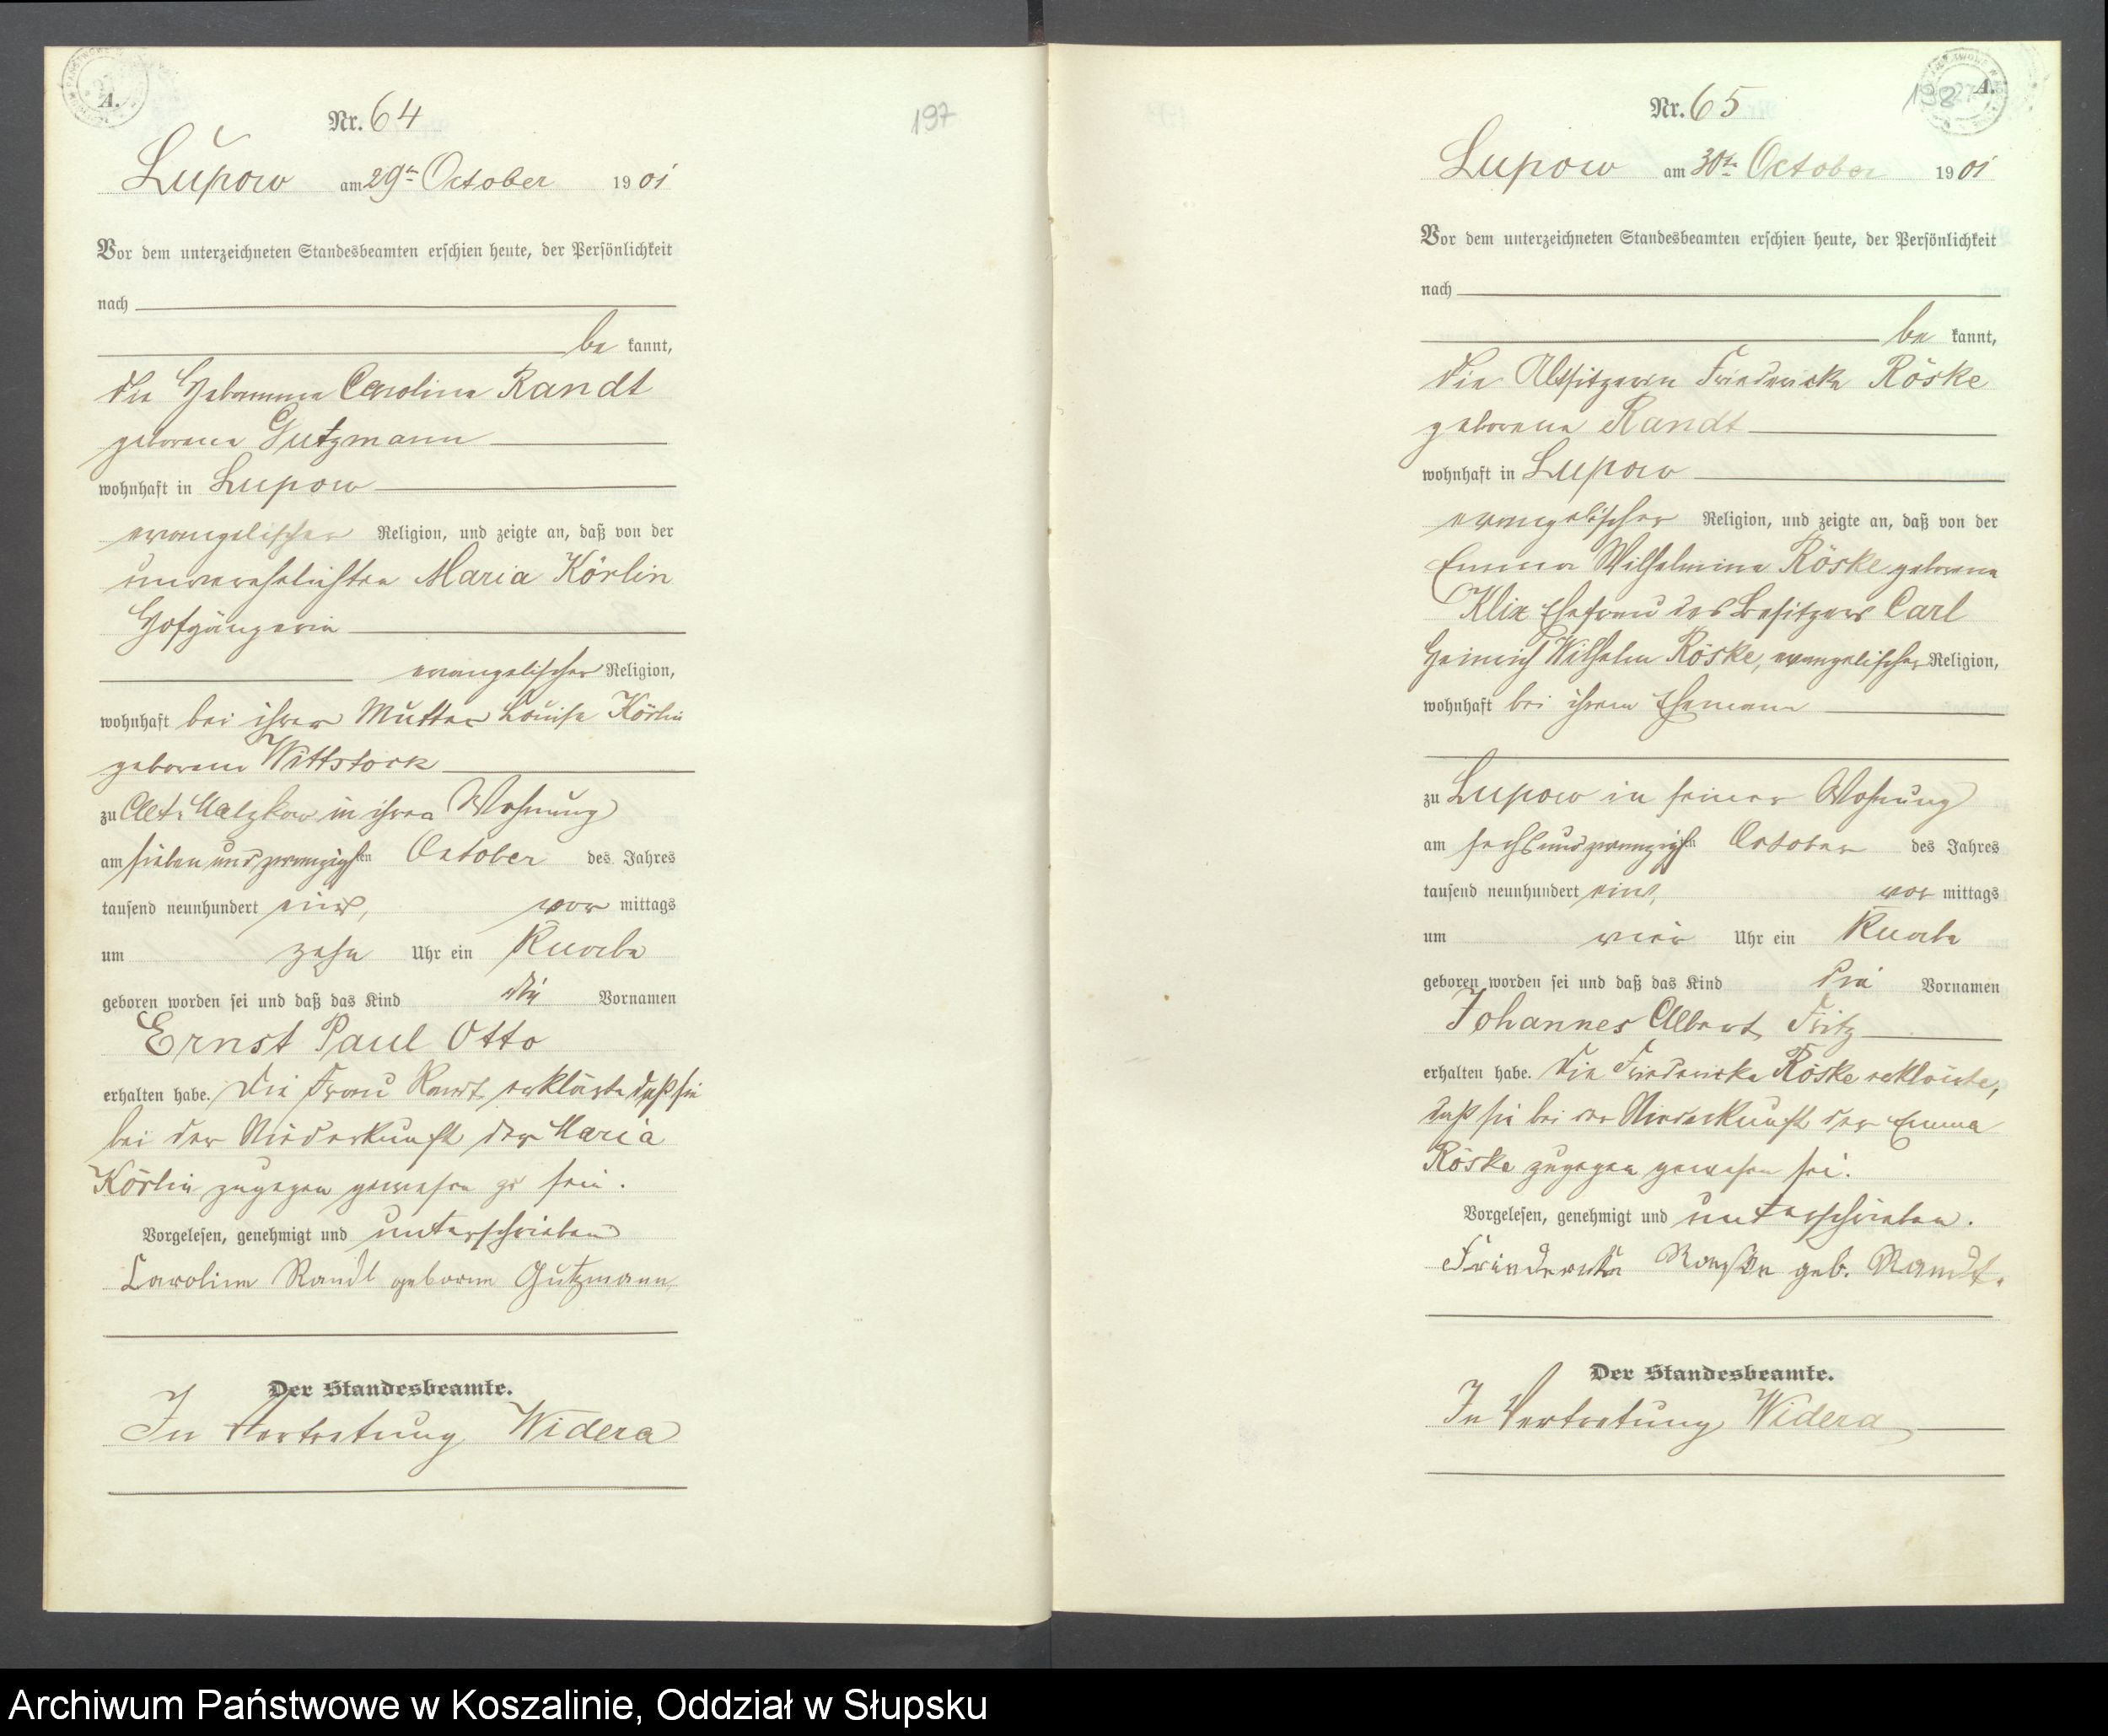 A.
Nr. 64
Lupow am 29ten October 1901
Vor dem unterzeichneten Standesbeamten erschien heute, der Persönlichkeit
nach
be kannt,
die Hebamme Caroline Randt
geborene Gutzmann
wohnhaft in Lupow
evangelischer Religion, und zeigte an, daß von der
unverehelichten Maria Körlin
Hofgängerin
evangelischer Religion,
wohnhaft bei ihrer Mutter Louise Körlin
geborene Wittstock
zu Alt Malzkow in ihrer Wohnung
am sieben und zwanzigsten October des Jahres
tausend neunhundert eins, vor mittags
um zehn Uhr ein Knabe
geboren worden sei und daß das Kind die Vornamen
Ernst Paul Otto
erhalten habe. Die Frau Randt erklärte daß sie
bei der Niederkunft der Maria
Körlin zugegen gewesen sein.
Vorgelesen, genehmigt und unterschrieben
Caroline Randt geborne Gutzmann
Der Standesbeamte.
In Vertretung Widera
197
A.
198
Nr. 65
Lupow am 30ten October 1901
Vor dem unterzeichneten Standesbeamten erschien heute, der Persönlichkeit
nach
be kannt,
die Altsitzerin Friedericke Röske
geborene Randt
wohnhaft in Lupow
evangelischer Religion, und zeigte an, daß von der
Emma Wilhelmine Röske geborene
Klix Ehefrau des Besitzers Carl
Heinrich Wilhelm Röske, evangelischer Religion,
wohnhaft bei ihrem Ehemann
zu Lupow in seiner Wohnung
am sechsundzwanzigsten October des Jahres
tausend neunhundert eins, vor mittags
um vier Uhr ein Knabe
geboren worden sei und daß das Kind die Vornamen
Johannes Albert Fritz
erhalten habe. Die Friedericke Röske erklärte,
daß sie bei der Niederkunft der Emma
Röske zugegen gewesen sei.
Vorgelesen, genehmigt und unterschrieben.
Friedericke Roeske geb. Randt.
Der Standesbeamte.
In Vertretung Widera
Archiwum Państwowe w Koszalinie, Oddział w Słupsku